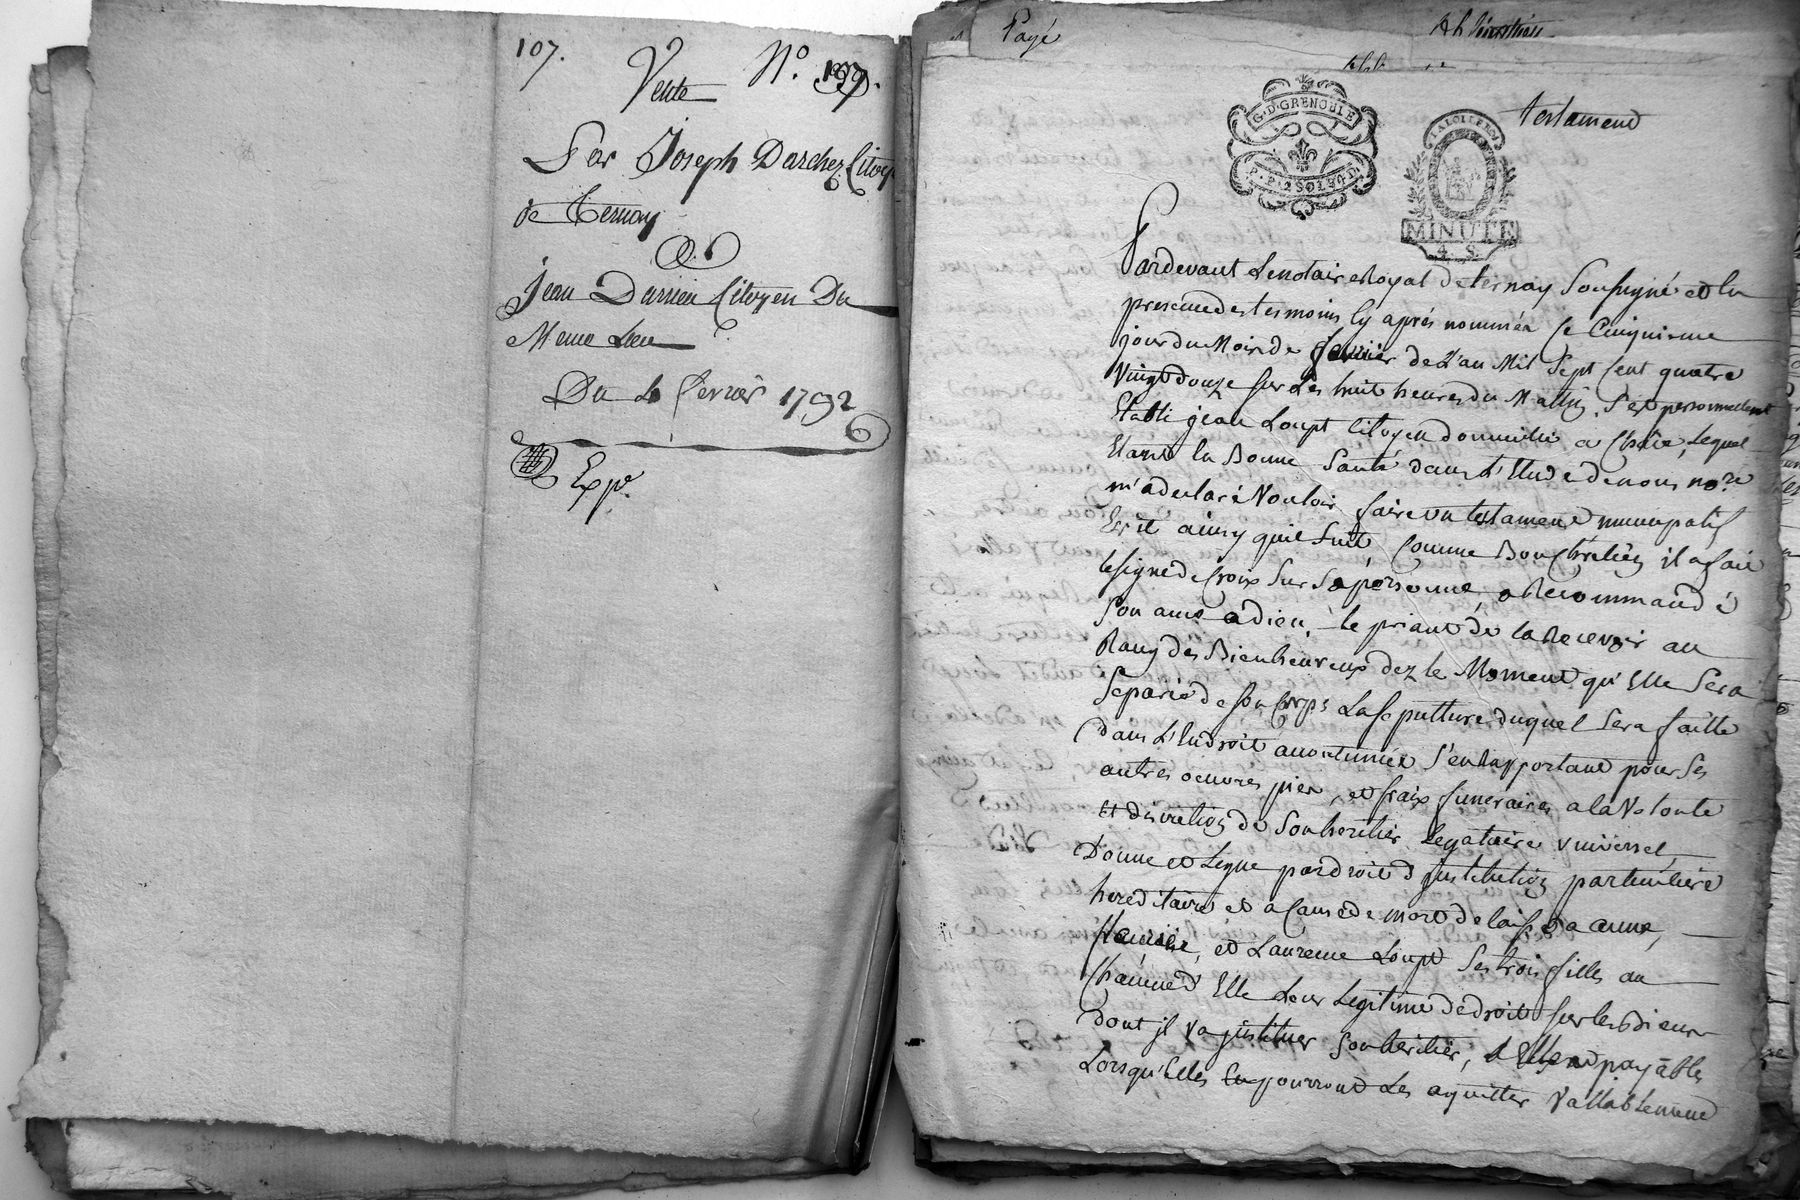 107.
Vente N.º 107.
Par Joseph Darchez Citoyen
de Ternay
à
Jean Durieu Citoyen Du
Meme Lieu
Du 4 fevrier 1792
Exp.
Payé
testament
G·D·GRENOBLE
MINUTE
4 S
Pardevant Le notaire Royal de ternay Soussigné et En
presence des tesmoins Cy aprés nommés Ce Cinquieme
jour du Mois de fevrier de L'an Mil Sept Cent quatre
Vingt douze sur Les huit heures du Mattin, S'est personnellement
Etabli jean Loupt Citoyen domicilié a Chaîe, Lequel
Etant En Bonne Santé dans L'Etude de nous no.re
m'a declaré Vouloir faire un testament nuncupatif
Ecrit ainsy quil Suit, Comme Bon Chrétien il a fait
le signe de Croix Sur Sa personne, a Recommandé
Son ame a dieu, le priant de la Recevoir au
Rang des Bienheureux dez le Moment qu'Elle Sera
Separée de son Corps La sepulture duquel Sera faitte
dans L'Endroit accoutumée S'en Rapportant pour Ses
autres oeuvres pies, et fraix funeraires a la Volonté
et discretion de Son heritier Legataire universel,
Donne et Legue par droit d'institution particuliere
hereditaire et a Cause de mort delaisse a anne,
et Laurence Loupt Ses trois filles au
Chacune d'Elle Leur Legitime de droit sur les Biens
dont il Va jnstituer Son heritier, payables
Lorsqu'Elles En pourront Les aquitter Vallablement